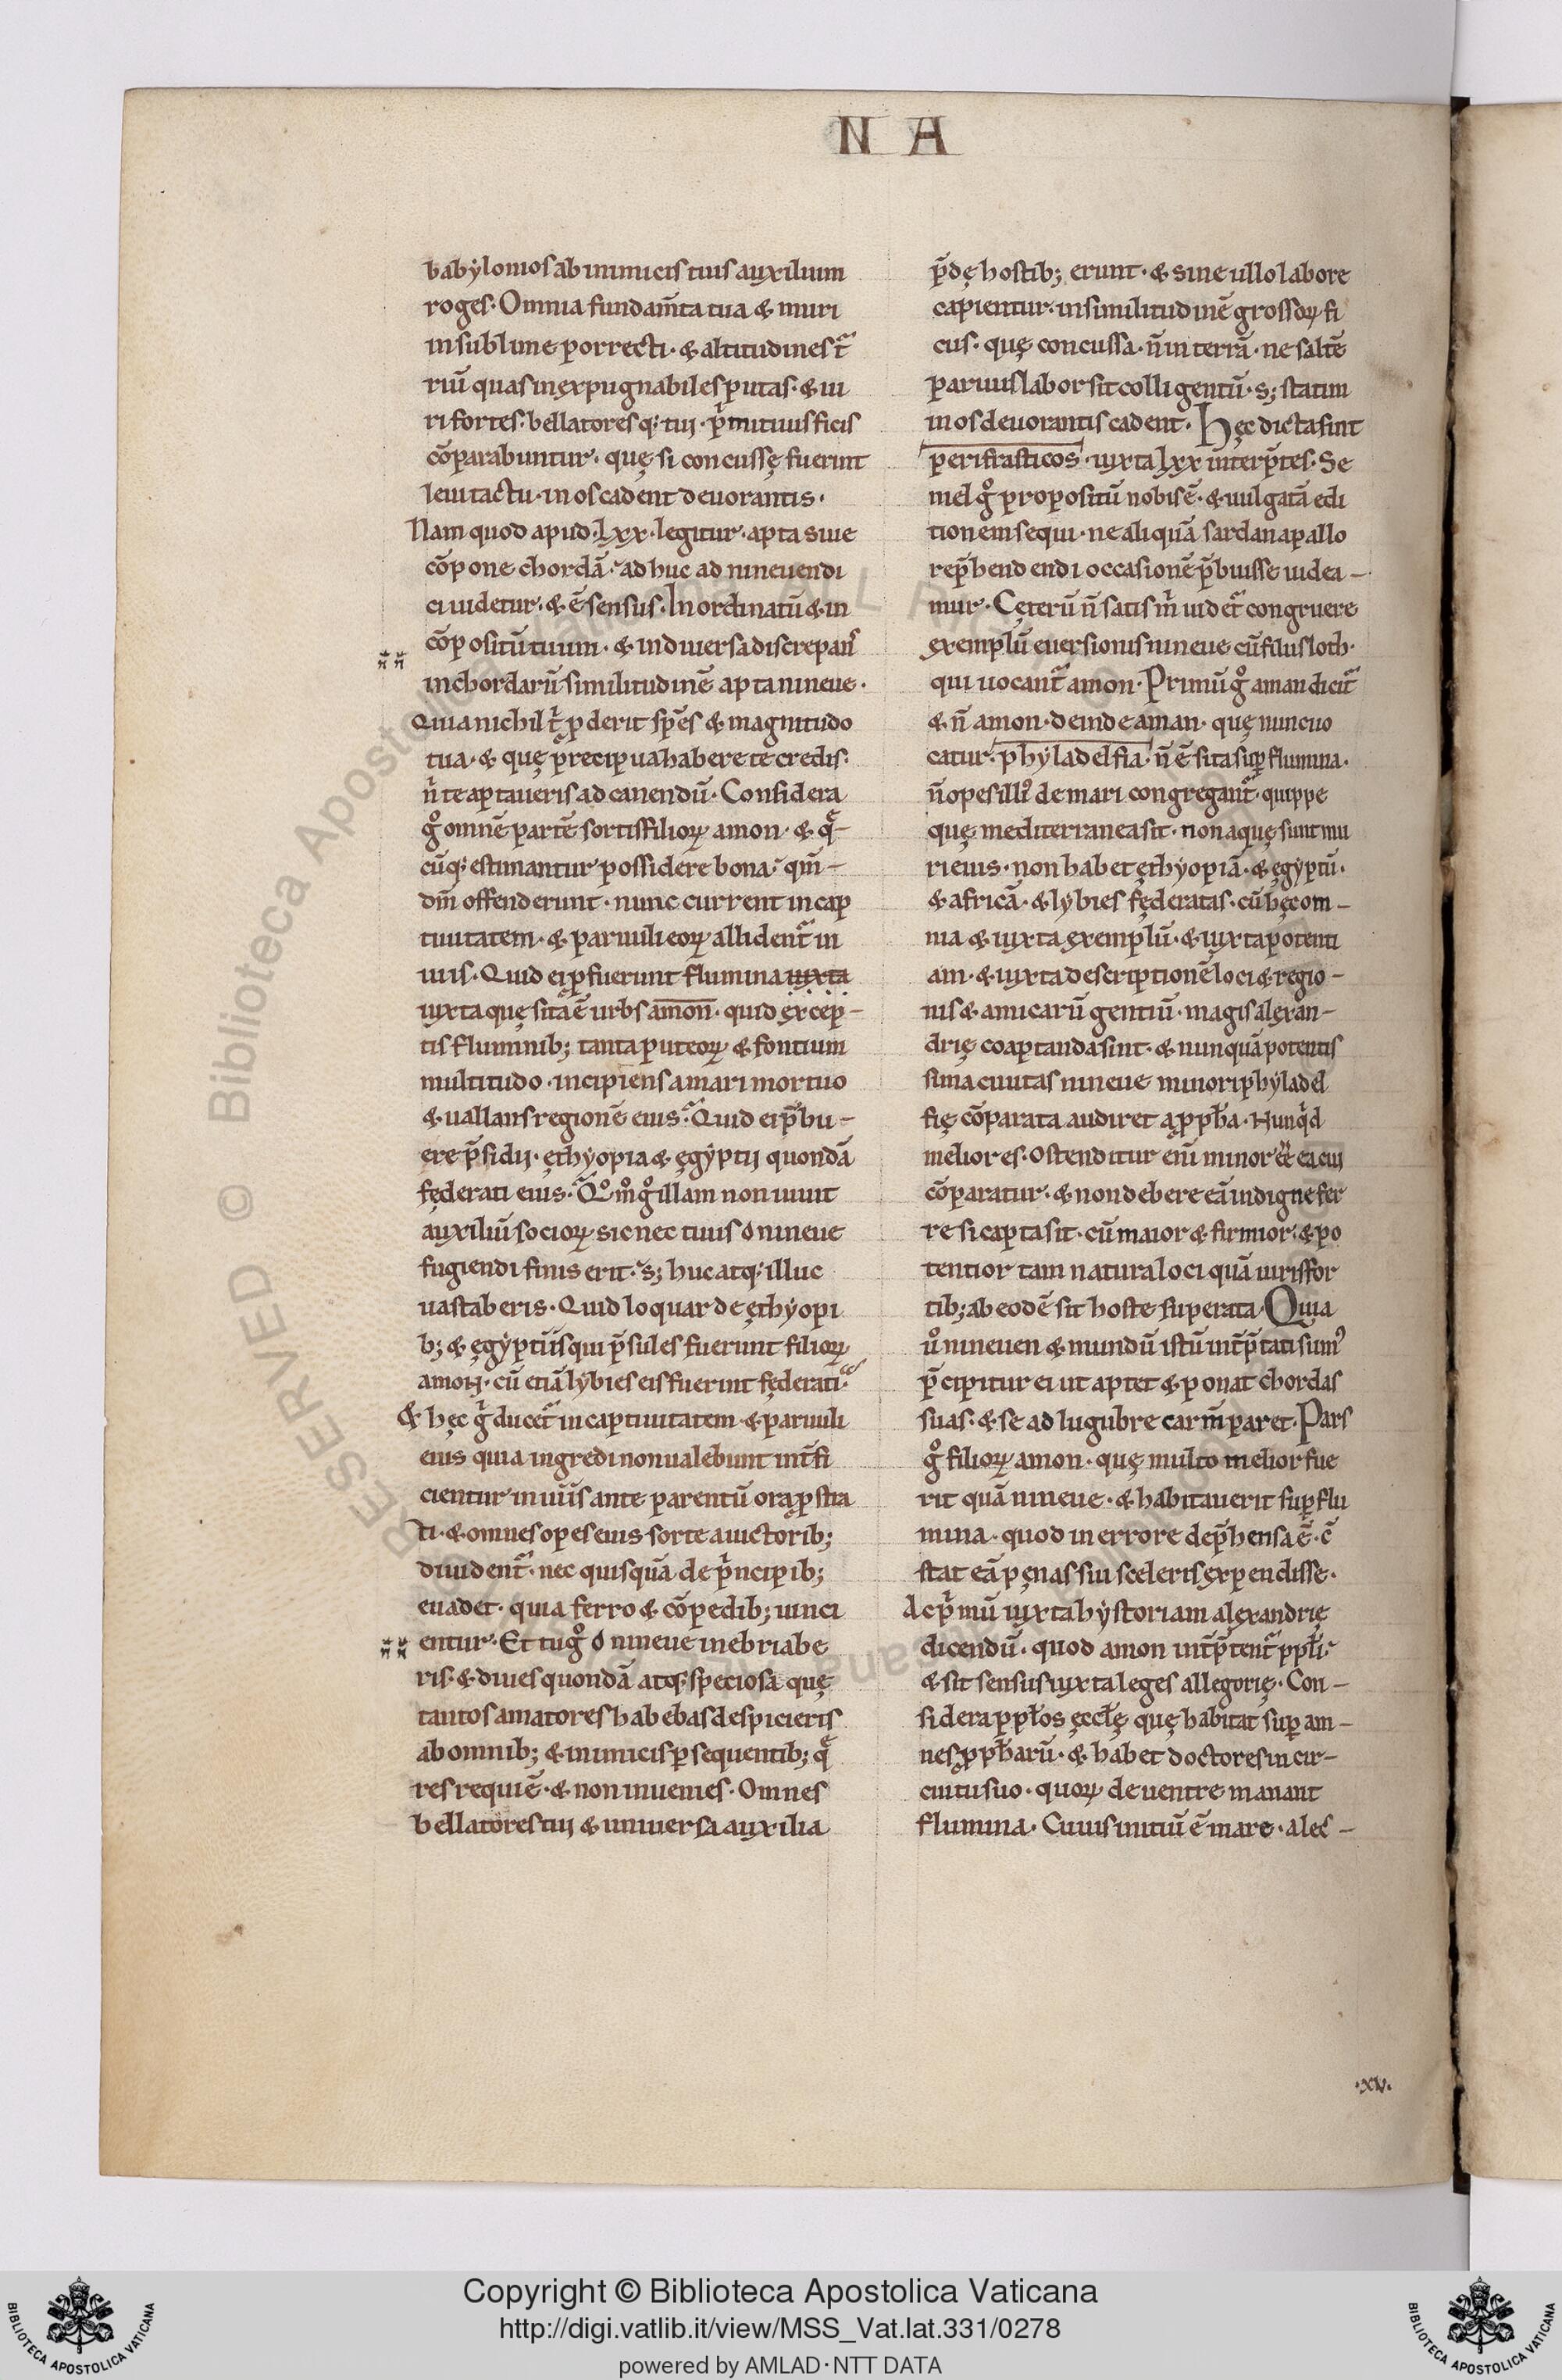 N A
babẏlonios ab inimicis tuis auxilium
roges. Omnia fundam̄ta tua & muri
in sublime porrecti. & altitudines tᷓ
riū quas inexpugnabiles putas. & ui
ri fortes. bellatoresq; tui. p̄mitiuis ficis
cōparabuntur. quę si concussę fuerint
leui tactu. in os cadent deuorantis.
Nam quod apud .lxx. legitur. apta siue
cōpone chordā. ad huc ad nineuen di
ci uidetur. & ē sensus. Inordinatū & in
cōpositū tuum. & in diuersa discrepans
in chordarū similitudinē apta nineue.
Quia nichil t̄ pderit spēs & magnitudo
tua. & quę precipua habere te credis.
n̄ te aptaueris ad canendū. Considera
g° omnē partē sortis filioꝝ amon. & qᷓ-
cūq; estimantur possidere bona. qm̄-
dm̄ offenderunt. nunc current in cap
tiuitatem. & paruuli eoꝝ allident᷑ in
uiis. Quid ei pfuerunt flumina iuxta
iuxta quę sita ē urbs amon. quid excep-
tis fluminib; tanta puteoꝝ & fontium
multitudo. incipiens a mari mortuo
& uallans regionē eius. Quid ei p̄bu-
ere p̄sidii. ęthẏopia & ęgẏptii quondā
fęderati eius. Q°m° g° illam non iuuit
auxiliū socioꝝ sic nec tuus ó nineue
fugiendi finis erit. s; huc atq; illuc
uastaberis. Quid loquar de ęthẏopi
b; & ęgẏptiis qui p̄sules fuerunt filioꝝ
amon. cū etiā lẏbies eis fuerint fęderati.
& hęc gᷓ ducet᷑ in captiuitatem & paruuli
eius quia ingredi non ualebunt int̄fi
cientur in uiis ante parentū ora pstra
ti. & omnes opes eius sorte a uictorib;
diuident᷑. nec quisquā de p̄ncipib;
euadet. quia ferro & cōpedib; uinci
entur. Et tu g° ó nineue inebriabe
ris. & diues quondā atq; speciosa quę
tantos amatores habebas despicieris
ab omnib; & inimicis psequentib; qᷓ
res requiē. & non inuenies. Omnes
bellatores tui & uniuersa auxilia
p̄dę hostib; erunt. & sine ullo labore
capientur. in similitudinē grossoꝝ fi
cus. quę concussa. n̄ in terrā. ne saltē
paruus labor sit colligentū. s; statim
in os deuorantis cadent. Hęc dicta sint
perifrasticos. iuxta lxx interp̄tes. Se
mel g° propositū nobis ē. & uulgatā edi
tionem sequi. ne aliquā sardanapallo
rep̄hendendi occasionē p̄buisse uidea-
mur. Cęterū n̄ satis m̄ uidet᷑ congruere
exemplū euersionis nineue cū filiis loth.
qui uocant᷑ amon. Primū g° aman dicit᷑
& n̄ amon. deinde aman. quę nunc uo
catur. phẏladelfia. n̄ ē sita sup flumina.
n̄ opes illi⁹ de mari congregant᷑. quippe
quę mediterranea sit. non aquę sunt mu
ri eius. non habet ęthẏopiā. & ęgẏptū.
& africā. & lẏbies fęderatas. cū hęc om-
nia & iuxta exemplū. & iuxta potenti
am. & iuxta descriptionē loci & regio-
nis & amicarū gentiū. magis alexan-
drię coaptanda sint. & nunquā potentis
sima ciuitas nineue minori phẏladel
fię cōparata audiret a pph̄a. Nunq̇d
melior es. Ostenditur eni minor ēē ea cui
cōparatur. & non debere eā indigne fer
re si capta sit. cū maior & firmior. & po
tentior tam natura loci quā uiris for
tib; ab eodē sit hoste superata. Quia
u° nineuen & mundū istū int̄p̄tati sum⁹
p̄cipitur ei ut aptet & ponat chordas
suas. & se ad lugubre carm̄ paret. Pars
g° filioꝝ amon. quę multo melior fue
rit quā nineue. & habitauerit sup flu
mina. quod in errore dep̄hensa ē. c̄
stat eā pęnas sui sceleris expendisse.
Ac p̄mū iuxta hẏstoriam alexandrię
dicendū. quod amon int̄p̄tent᷑ ppl̄i.
& sit sensus iuxta leges allegorię. Con-
sidera ppl̄os ęccl̄ę quę habitat sup am-
nes pph̄arū. & habet doctores in cir-
cuitu suo. quoꝝ de uentre manant
flumina. Cuius initiū ē mare. a lec-
.xv.
© Biblioteca Apostolica Vaticana
Copyright © Biblioteca Apostolica Vaticana
http://digi.vatlib.it/view/MSS_Vat.lat.331/0278
powered by AMLAD·NTT DATA
BIBLIOTECA APOSTOLICA VATICANA
BIBLIOTECA APOSTOLICA VATICANA